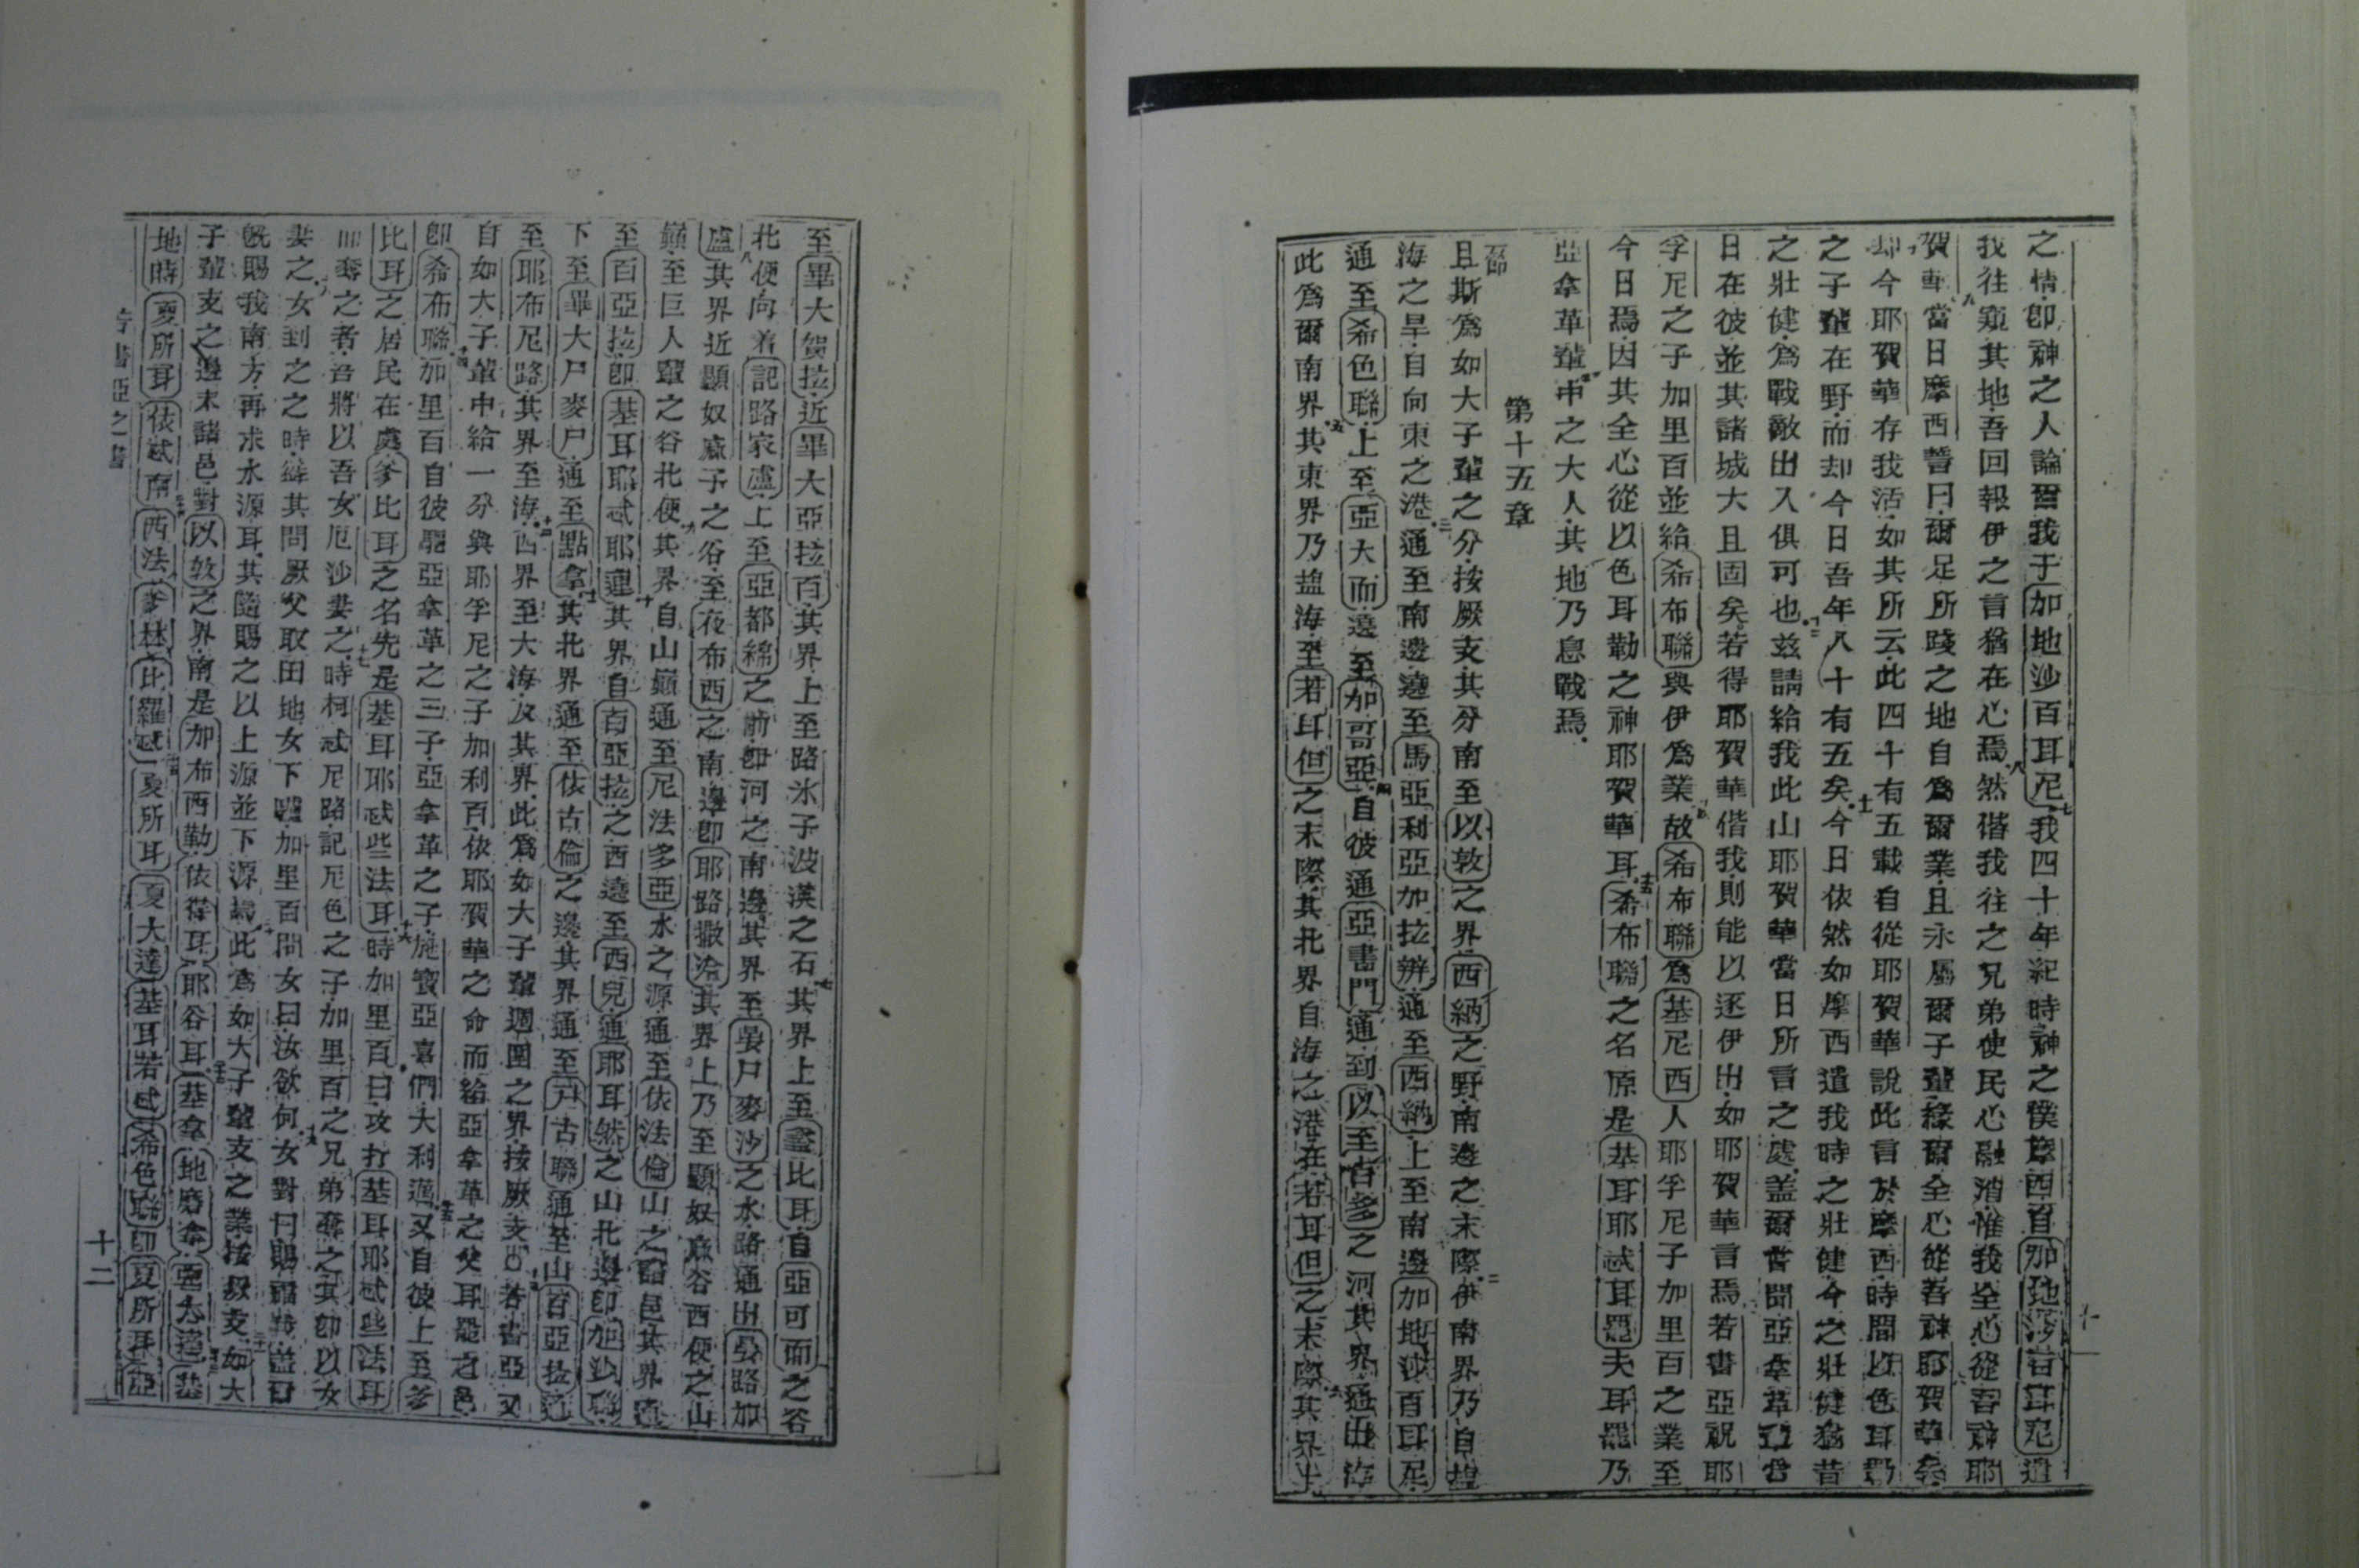 之情卽神之人論爾我于加地沙百耳尼七我四十年紀時神之僕摩西自加地沙百耳尼遣
我往窺其地吾回報伊之言猶在心焉八然偕我往之兄弟使民心融消惟我全心從吾神耶
賀華九當日摩西誓曰爾足所踐之地自爲爾業且永屬爾子輩緣爾全心從吾神耶賀華矣
十却今耶賀華存我活如其所云此四十有五載自從耶賀華說此言於摩西時間以色耳勒
之子輩在野而却今日吾年八十有五矣十一今日依然如摩西遣我時之壯健今之壯健猶昔
之壯健爲戰敵出入俱可也十二茲請給我此山耶賀華當日所言之處蓋爾嘗聞亞拿革輩當
日在彼並其諸城大且固矣若得耶賀華偕我則能以逐伊出如耶賀華言焉十三若書亞祝耶
孚尼之子加里百並給希布聯與伊爲業十四故希布聯爲基尼西人耶孚尼子加里百之業至
今日焉因其全心從以色耳勒之神耶賀華耳十五希布聯之名原是基耳耶忒耳罷夫耳罷乃
亞拿革輩中之大人其地乃息戰焉
第十五章
一節
且斯爲如大子輩之分按厥支其分南至以敦之界西納之野南邊之末際二伊南界乃自鹽
海之旱自向東之港三通至南邊遶至馬亞利亞加拉辨通至西納上至南邊加地沙百耳尼
通至希色聯上至亞大而遶至加哥亞四自彼通亞書門通到以至百多之河其界通出海
此爲爾南界五其東界乃鹽海至若耳但之末際其北界自海之港在若耳但之末際六其界上
至畢大賀拉近畢大亞拉百其界上至路氷子波漢之石七其界上至畵比耳自亞可而之谷
北便向着記路家盧上至亞都綿之前卽河之南邊其界至晏尸麥沙之水路通出晏路加
盧八其界近顯奴嬴子之谷至夜布西之南邊卽耶路撒冷其界上乃至顯奴嬴谷西便之山
巔至巨人輩之谷北便九其界自山巔通至尼法多亞水之源通至依法倫山之諸邑其界遶
至百亞拉卽基耳耶忒耶連十其界自百亞拉之西遶至西兒通耶耳然之山北邊卽加沙聯
下至畢大尸麥尸通至點拿十一其北界通至依古倫之邊其界通至尸古聯通至山百亞拉近
至耶布尼路其界至海十二西界至大海及其界此爲如大子輩週圍之界按厥支也十三若書亞又
自如大子輩中給一分與耶孚尼之子加利百依耶賀華之命而給亞拿革之父耳罷之邑
卽希布聯十四加里百自彼驅亞拿革之三子亞拿革之子施寶亞喜們大利邁十五又自彼上至爹
比耳之居民在處爹比耳之名先是基耳耶忒些法耳十六時加里百曰攻打基耳耶忒些法耳
而奪之者吾將以吾女厄沙妻之十七時柯忒尼路記厄色之子加里百之兄弟奪之其卽以女
妻之十八女到之之時縒其問厥父取田地女下驢加里百問女曰汝欲何十九女對曰賜福我蓋曾
旣賜我南方再求水源耳其隨賜之以上源並下源焉二十此爲如大子輩支之業按厥支二十一如大
子輩支之邊末諸邑對以敦之界南是加布西勒依得耳耶谷耳二十二基拿地磨拿亞大達二十三基
地時夏所耳依忒南二十四西法爹林比羅忒二十五夏所耳夏大達基耳若忒希色聯卽夏所耳二十六亞
若書亞之書
十二